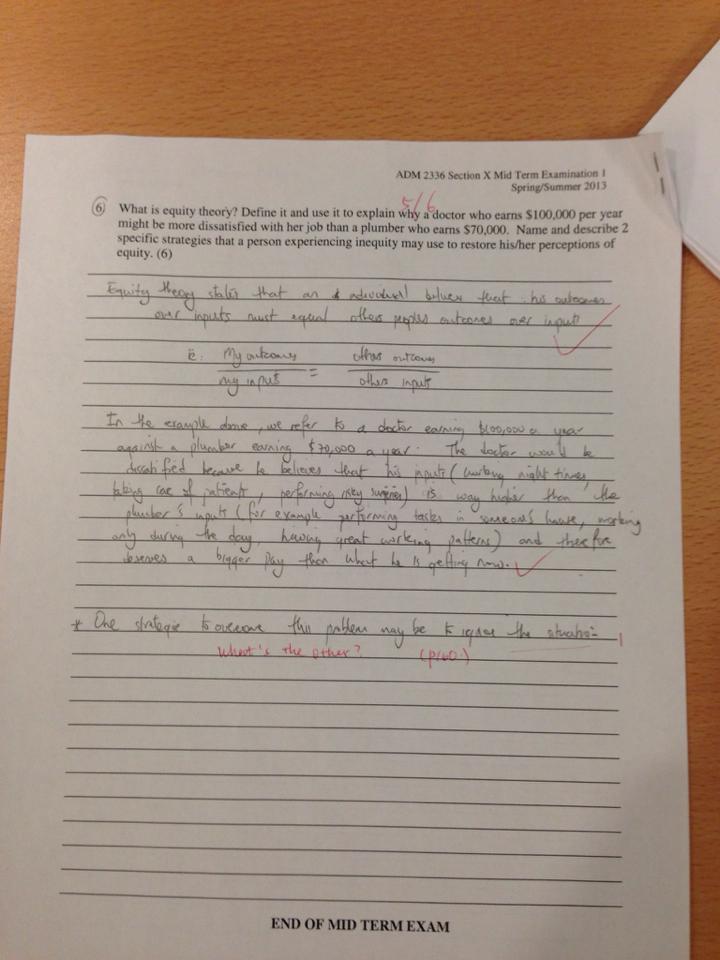 ADM 2336 Section X Mid Term Examination 1
Spring/Summer 2013
5/6
6 What is equity theory? Define it and use it to explain why a doctor who earns $100,000 per year
might be more dissatisfied with her job than a plumber who earns $70,000. Name and describe 2
specific strategies that a person experiencing inequity may use to restore his/her perceptions of
equity. (6)
Equity theory states that an individual believes that his outcomes
over inputs must equal others peoples outcomes over inputs
ie: My outcomes / my inputs = others outcomes / others inputs
In the example above, we refer to a doctor earning $100,000 a year
against a plumber earning $70,000 a year. The doctor would be
dissatisfied because he believes that his inputs (working night times,
taking care of patients, performing risky surgeries) is way higher than the
plumber's inputs (for example performing tasks in someone's house, working
only during the day, having great working patterns) and therefore
deserves a bigger pay than what he is getting now.
* One strategie to overcome this problem may be to ignore the situation 1
What's the other? (p160.)
END OF MID TERM EXAM